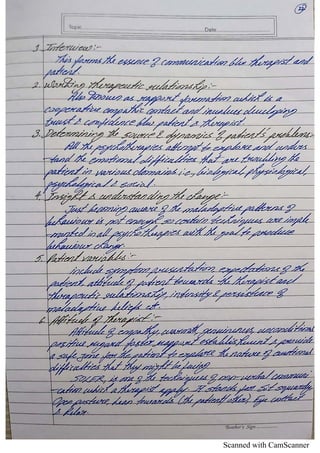 32
Topic
Date
1. Interview:-
This forms the essence of communication b/w therapist and
patient.
2. Working therapeutic relationship:-
Also known as rapport formation which is a
cooperative empathic contact and involves developing
trust & confidence b/w patient & therapist.
3. Determining the source & dynamics of patient's problems:-
All the psychotherapies attempt to explore and unders-
tand the emotional difficulties that are troubling the
patient in various domains i.e., biological, physiological,
psychological & social.
4. Insight & understanding the change:-
Just becoming aware of the maladaptive patterns of
behaviour is not enough so certain techniques are imple-
mented in all psychotherapies with the goal to produce
behaviour change.
5. Patient variables:-
include symptom presentation, expectations of the
patient, attitude of patient towards the therapist and
therapeutic relationship, intensity & persistence of
maladaptive beliefs etc.
6. Attitude of therapist:-
Attitude of empathy, warmth, genuineness, unconditional
positive regard foster rapport establishment & provide
a safe zone for the patient to explore the nature of emotional
difficulties that they might be facing.
SOLER, is one of the techniques of non-verbal communi-
cation which a therapist apply. It stands for: Sit squarely,
Open posture, lean towards (the patient/client) Eye contact
& Relax.
Teacher's Sign
Scanned with CamScanner